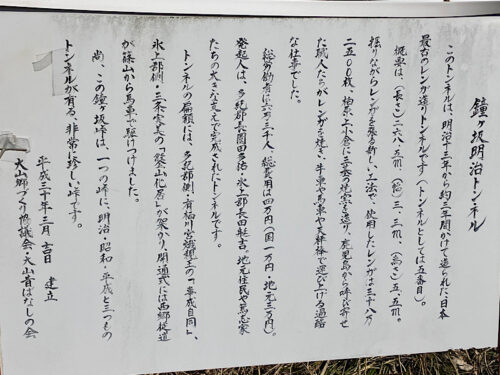 鐘ヶ坂明治トンネル
このトンネルは、明治十三年から約三年間かけて造られた、日本
最古のレンガ造りトンネルです(トンネルとしては五番目)。
概要は、(長さ)二六八・五m、(幅)三、三m、(高さ)五、五m。
掘りながらレンガを張る新しい工法で、使用したレンガは三十八万
二五〇〇枚、柏原、上小倉に三基の焼窯を造り、鹿児島から呼び寄せ
た職人たちがレンガを焼き、牛車や馬車や天秤棒で運び上げる過酷
な仕事でした。
総労働者は六万三千人、総費用は四万円(国一万円・地元三万円)。
発起人は、多紀郡長園田多祐、氷上郡長田艇吉。地元住民や篤志家
たちの大きな支えで完成されたトンネルです。
トンネルの扁額には、多紀郡側、有栖川宮熾親王の「事成自同」、
氷上郡側、三条実美の「鑿山化居」が架かり、開通式には西郷従道
が篠山から馬車で駆けつけました。
尚、この鐘ヶ坂峠は、一つの峠に、明治・昭和・平成と三つもの
トンネルが有る、非常に珍しい峠です。
平成三十年三月吉日 建立
大山郷づくり協議会・大山昔ばなしの会